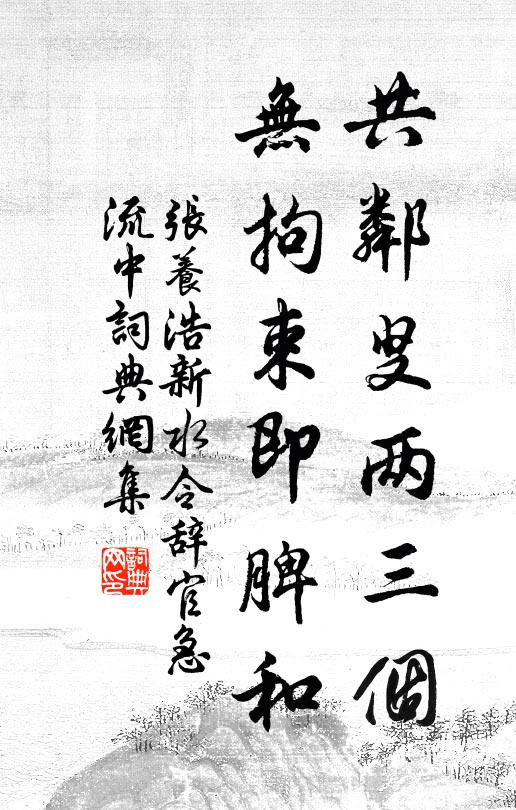 共鄰叟两三個
無拘束即脾和
張養浩新水令辞官急
流中詞典網集
詞典网印